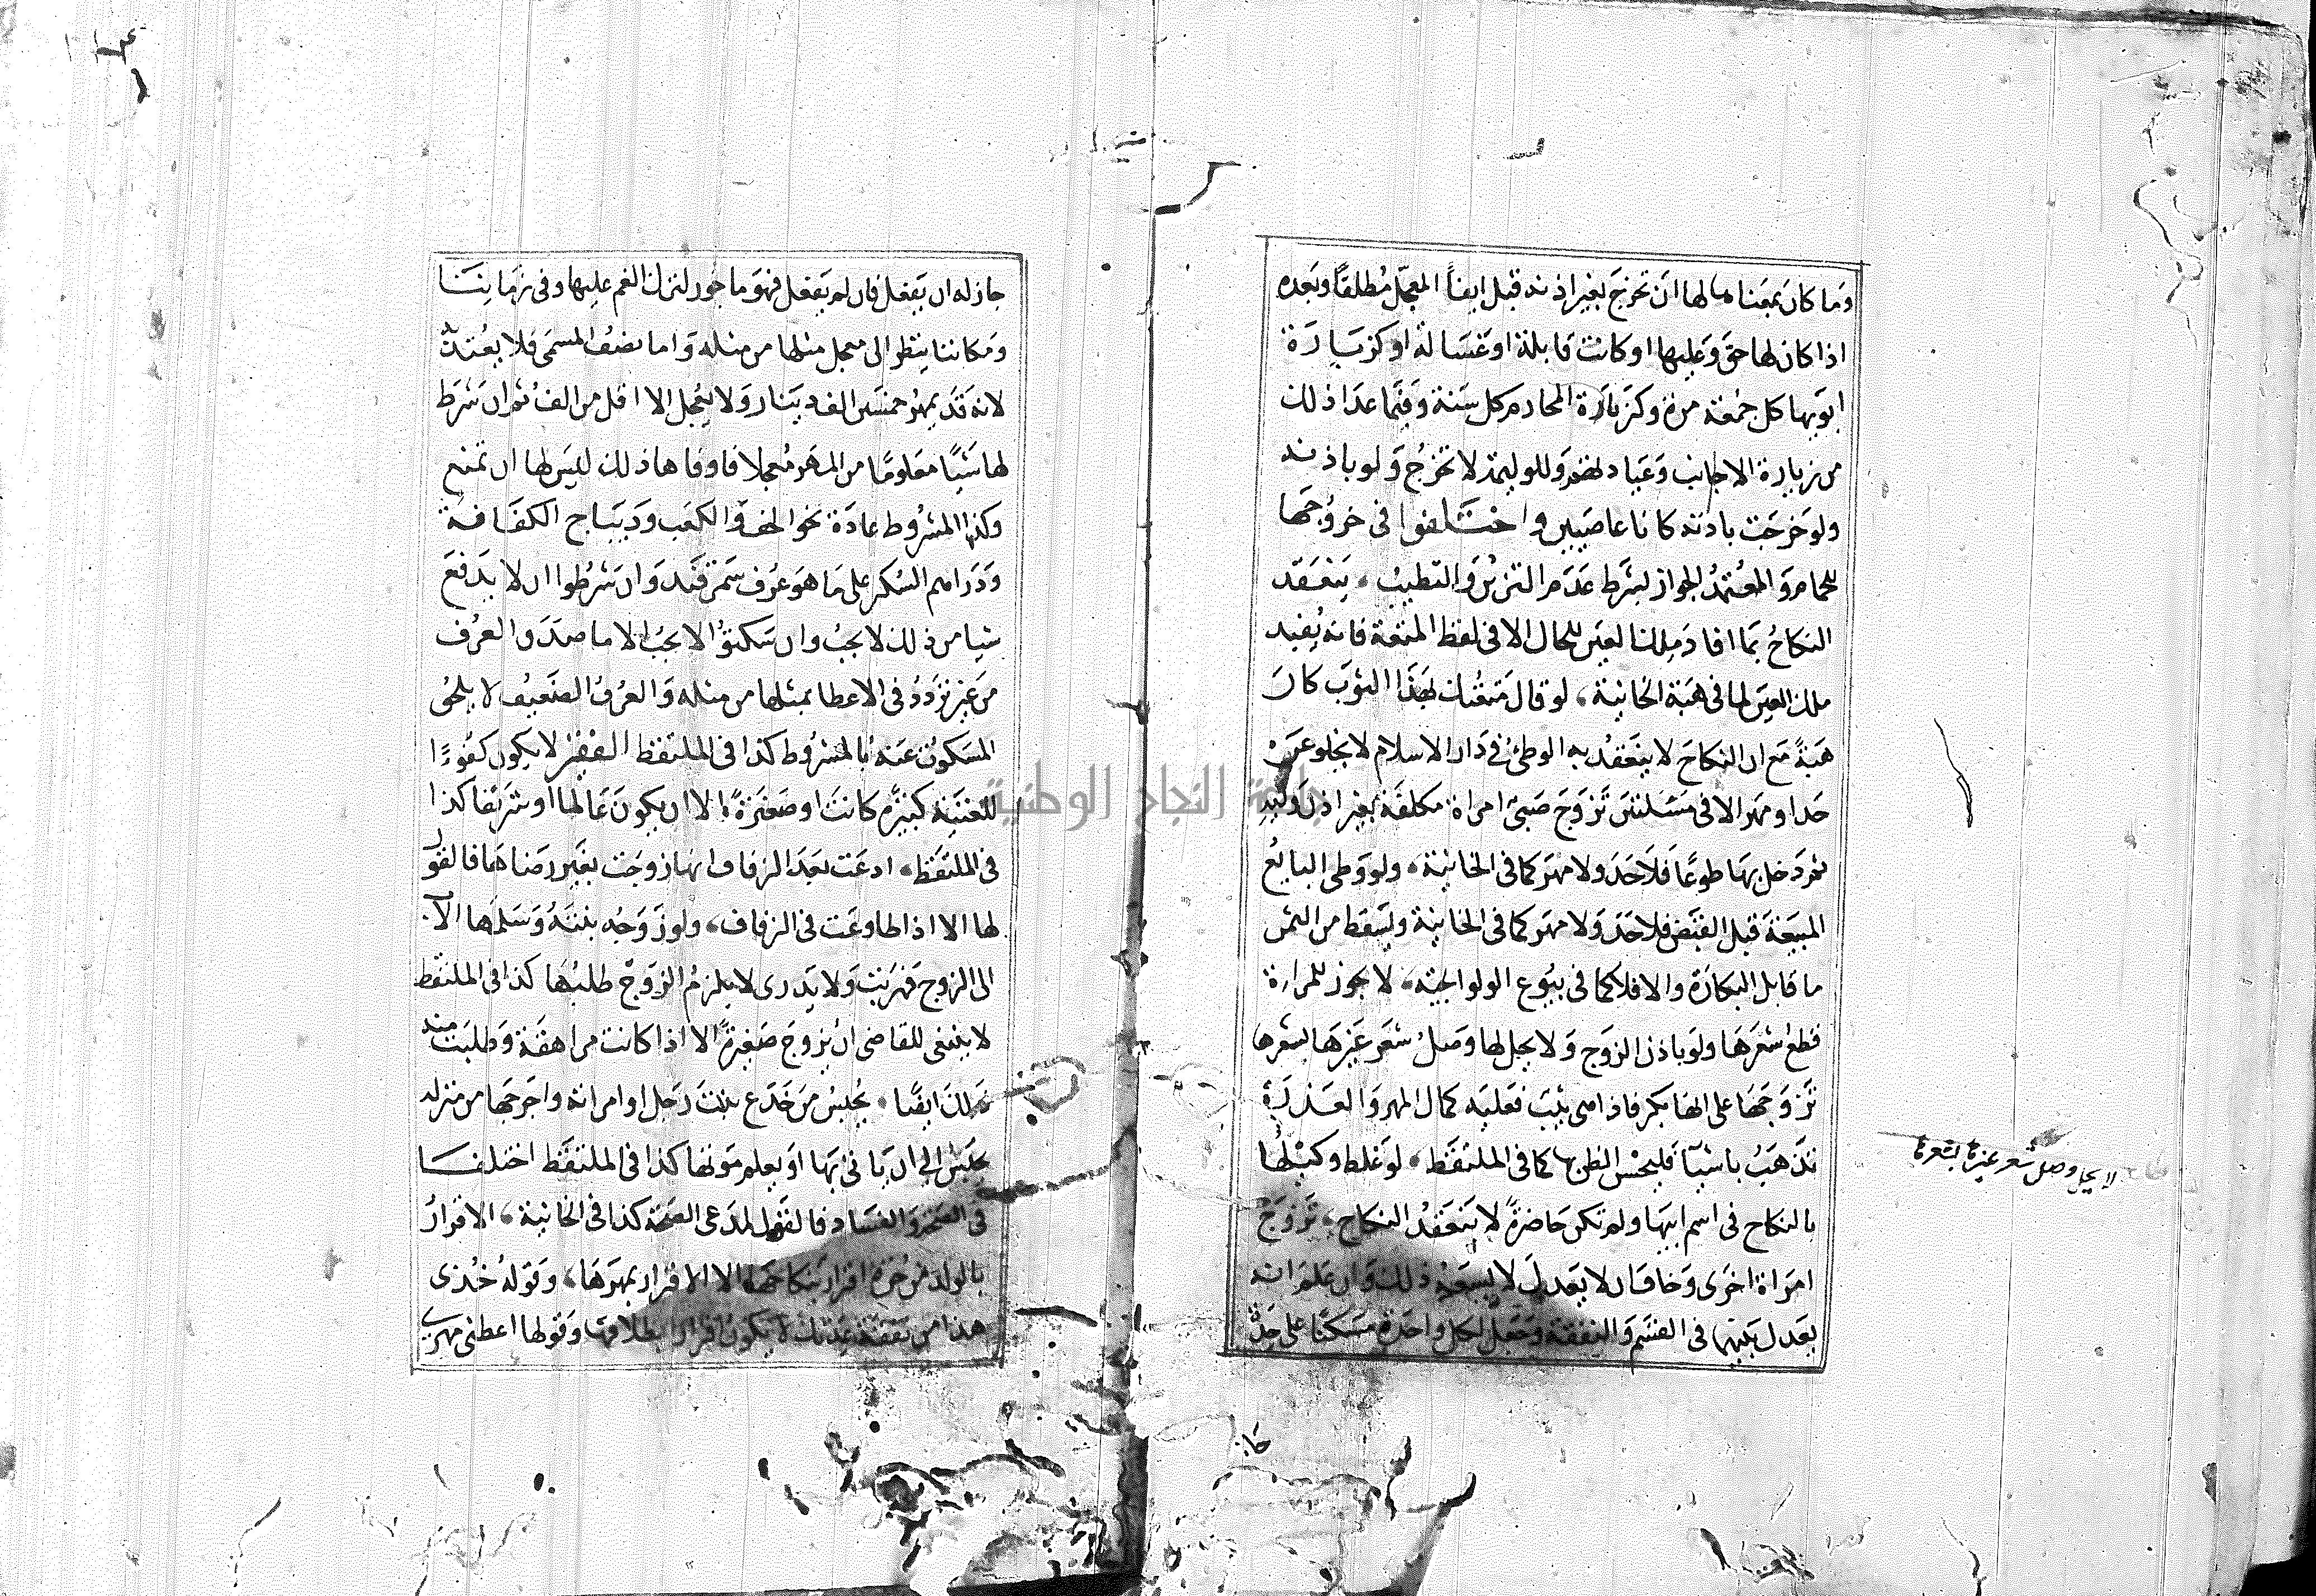 وما كان بمعناها لها ان تخرج بغير اذنه قبل ايفاء المعجل مطلقا وبعده
اذا كان لها حق وعليها او كانت قابلة او غسالة او كزيارة
ابويها كل جمعة مرة وكزيارة المحارم كل سنة وفيما عدا ذلك
من زيارة الاجانب وعيادتهم وللوليمة لا تخرج ولو باذنه
ولو خرجت باذنه كانا عاصيين واختلفوا في خروجها
للحمام والمعتمد الجواز بشرط عدم التزين والتطيب ينعقد
النكاح بما افاد ملك العين للحال الا في لفظ المتعة فانه يفيد
ملك العين لما في هبة الخانية لو قال متعتك بهذا الثوب كان
هبة مع ان النكاح لا ينعقد به الوطئ في دار الاسلام لا يخلو عن
حد او مهر الا في مسئلتين تزوج صبي امراة مكلفة بغير اذن وليه
ثم دخل بها طوعا فلا حد ولا مهر كما في الخانية ولو وطي البايع
المبيعة قبل القبض فلا حد ولا مهر كما في الخانية ويسقط من الثمن
ما قابل البكارة والا فلا كما في بيوع الولوالجية لا يجوز للمراة
قطع شعرها ولو باذن الزوج ولا يحل لها وصل شعر غيرها بشعرها
تزوجها على انها بكر فاذا هي ثيب فعليه كمال المهر والعذرة
تذهب باشيآ فليحسن الظن بها كما في الملتقط لو غلط وكيلها
بالنكاح في اسم ابيها ولم تكن حاضرة لا ينعقد النكاح تزوج
امراة اخرى وخاف ان لا يعدل لا يسعه ذلك وان علم انه
يعدل بينهما في القسم والنفقة وجعل لكل واحدة مسكنا على حدة
لا يحل وصل شعر غيرها بشعرها
جاز
جاز له ان يفعل فان لم يفعل فهو ماجور لترك الغم عليها وفي زماننا
ومكاننا ينظر الى معجل مثلها من مثله واما نصف المسمى فلا يعتبر
لانه قد يمهر خمسين الف دينار ولا يعجل الا اقل من الف ثم ان شرط
لها شيئا معلوما من المهر معجلا فاوفاها ذلك ليس لها ان تمنع
وكذا المشروط عادة نحو الخف والكعب وديباج الكفافة
ودراهم السكر على ما هو عرف سمرقند وان شرطوا ان لا يدفع
شيا من ذلك لا يجب وان سكتوا لا يجب الا ما صدق العرف
من غير تردد في الاعطا بمثلها من مثله والعرف الضعيف لا يلحق
المسكوت عنه بالمشروط كذا في الملتقط الفقير لا يكون كفوءا
للغنية كبيرة كانت او صغيرة الا ان يكون عالما او شريفا كذا
في الملتقط ادعت بعد الزفاف انها زوجت بغير رضاها فالقول
لها الا اذا طاوعت في الزفاف ولو زوجه بنته وسلمها الاب
الى الزوج فهربت ولا يدري لا يلزم الزوج طلبها كذا في الملتقط
لا ينبغي للقاضي ان يزوج صغيرة الا اذا كانت مراهقة وطلبت منه
ذلك ايضا يحبس من خدع بنت رجل او امراته واخرجها من منزله
يحبس الى ان ياتي بها او يعلم موتها كذا في الملتقط اختلفا
في الصحة والفساد فالقول لمدعي الصحة كذا في الخانية الاقرار
بالولد من حرة اقرار بنكاحها لا الاقرار بمهرها وقوله خذي
هذا من نفقة عدتك لا يكون اقرارا بطلاقها وقولها اعطني مهري
جامعة النجاح الوطنية